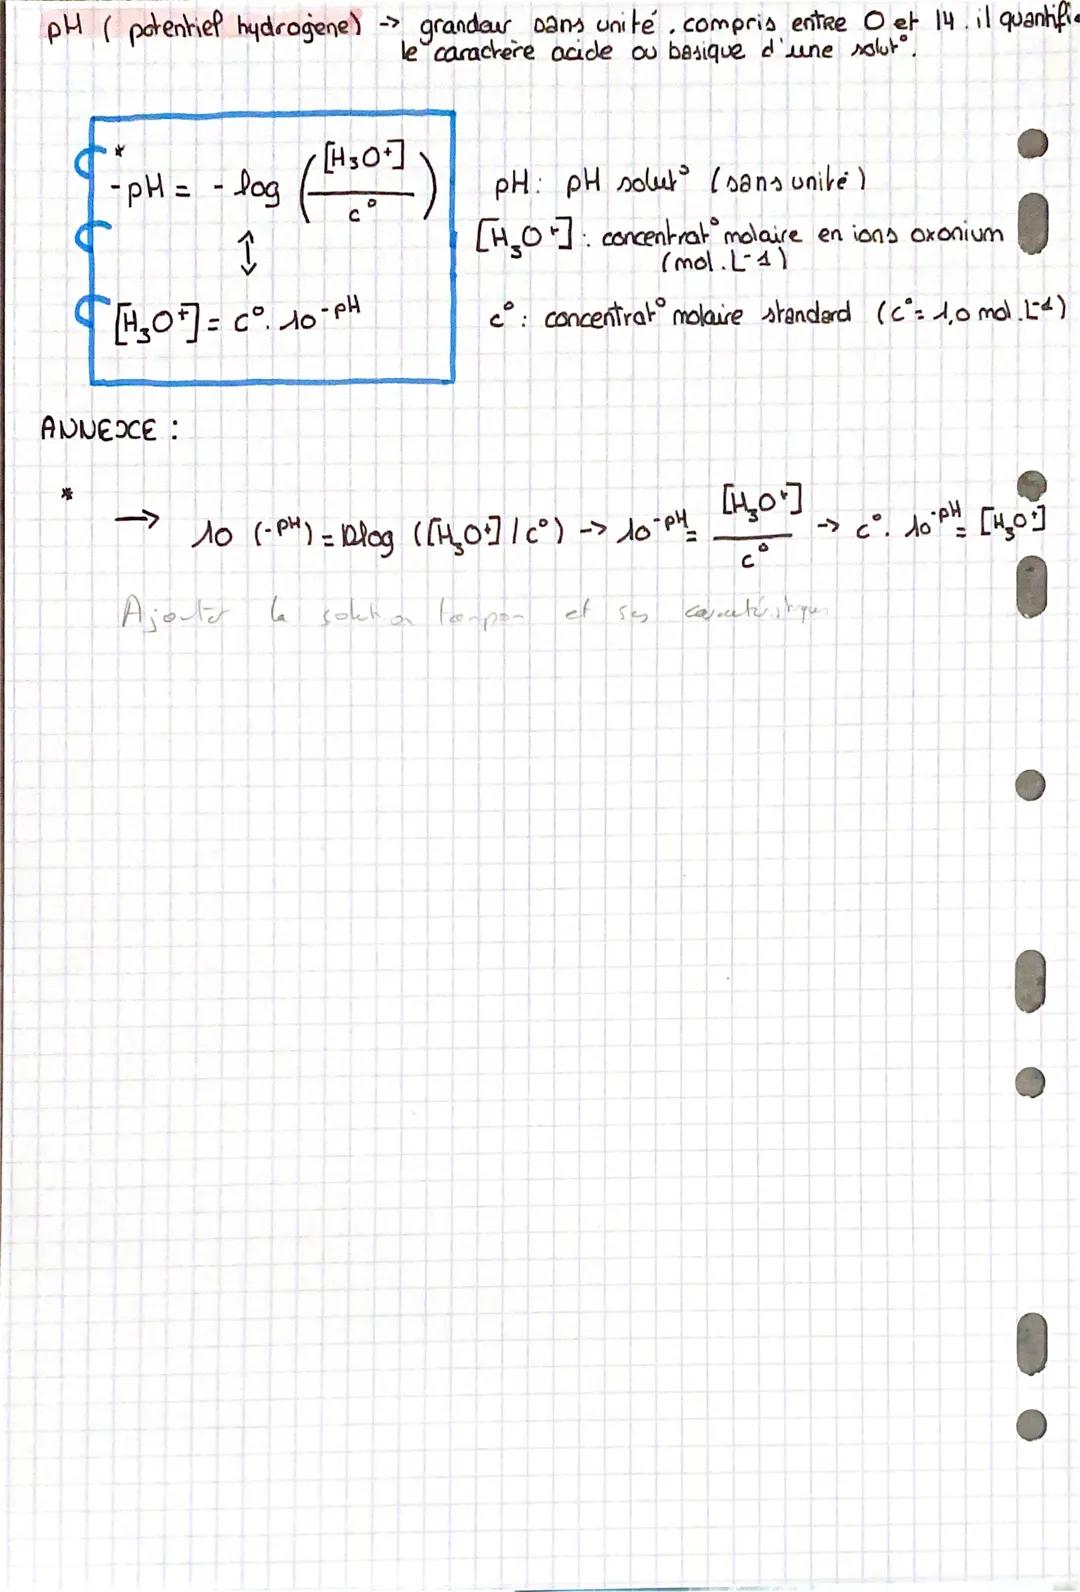 pH ( potentiel hydrogène) -> grandeur sans unité, compris entre 0 et 14. il quantifie
le caractère acide ou basique d'une solut°.
*
-pH = - log ([H₃O⁺] / c°)
↕
[H₃O⁺] = c°. 10^-pH
pH: pH solut° (sans unité)
[H₃O⁺]: concentrat° molaire en ions oxonium
(mol.L-1)
c°: concentrat° molaire standard (c°= 1,0 mol.L-1)
ANNEXE :
*
→ 10 (-pH) = 10log ([H₃O⁺] / c°) -> 10^-pH = [H₃O⁺] / c° -> c°. 10^-pH = [H₃O⁺]
Ajouter la solution tampon et ses caractéristiques